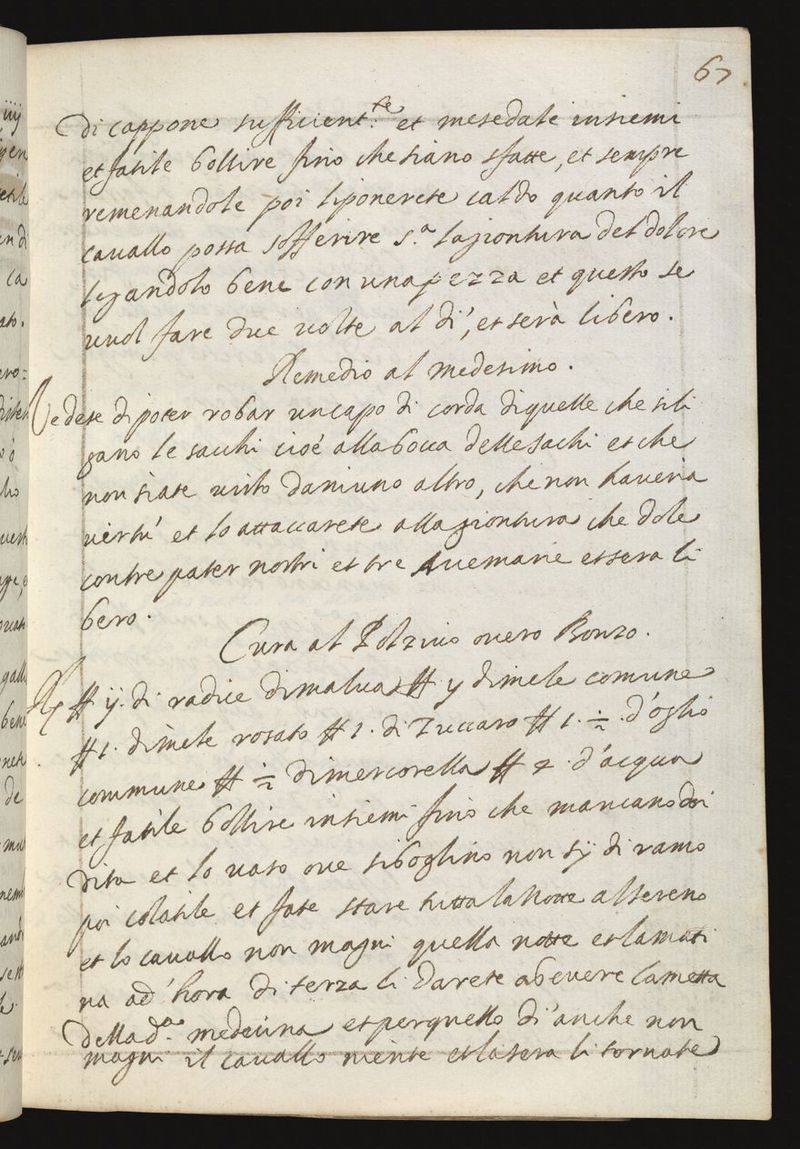 67
di cappone sufficient.te et mesedale insiemi
et fatile bollire fino che siano sfatte, et sempre
remenandole poi li ponerete caldo quanto il
cauallo possa sofferire s.a la giontura del dolore
ligandolo bene con una pezza et questo se
vuol fare due volte al di', et serà libero.
Remedio al medesimo.
Vedete di poter robar un capo di corda di quelle che si li
gano le sacchi cioé alla bocca delle sachi et che
non siate visto da niuno altro, che non haveria
virtu' et lo attaccarete alla giontura che dole
con tre pater nostri et tre Avemarie et sera li
bero.
Cura al Polzivo overo Bonzo.
Rx ℔ ij. di radice di malua ℔ ij di mele comune
℔ 1. di mele rosato ℔ 1. di Zuccaro ℔ 1. ½. d'oglio
commune ℔ ½ di mercorella ℔ 2. d'acqua
et fatile bollire insiemi fino che mancano doi
dita et lo vaso ove si boglino non sij di ramo
poi colatile et fate stare tutta la notte al sereno
et lo cauallo non magni quella notte et la mati
na ad' hora di terza li darete a bevere la metta
della d.a medicina et per quello di' anche non
magni il cauallo niente et la sera li tornate